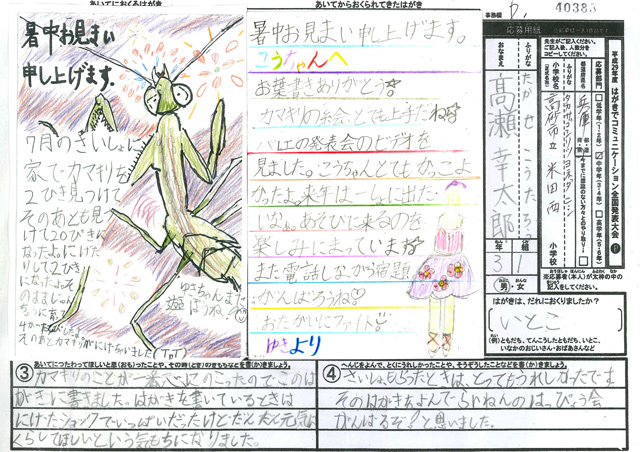 あいてにおくるはがき
暑中お見まい
申し上げます。
7月のさいしょに
家でカマキリを
2ひき見つけて
そのあとも見つ
けて20ぴきに
なったよ。にげた
りして2ひき
になったよ。そ
のあとカマキリがにげちゃいました(ToT)
ゆきちゃんまた
遊ぼうね
あいてからおくられてきたはがき
暑中お見まい申し上げます。
こうちゃんへ
お葉書きありがとう
カマキリの絵、とても上手だね
バレエの発表会のビデオを
見ました。こうちゃんとてもかっこよ
かったよ。来年は一しょに出た
いなぁ。あそびに来るのを
楽しみにまっています
また電話しながら宿題
がんばろうね
おたがいにファイト
ゆきより
事務欄
40383
応募用紙
先生がご記入ください。
ご記入後、人数分を
コピーしてください。
平成29年度 はがきでコミュニケーション全国発表大会
応募部門
低学年(1・2年)
中学年(3・4年)
高学年(5・6年)
都道府県名
兵庫
ふりがな
小学校名
高砂市立 米田西 小学校
ふりがな
たかせ こうたろう
おなまえ
髙瀬 幸太郎
3年 1組
男・女
※応募者(本人)が太枠の中の
記入をしてください。
はがきは、だれにおくりましたか?
いとこ
(例)ともだち、てんこうしたともだち、いとこ、
いなかのおじいさん・おばあさんなど
③ あいてにつたわってほしいと思(おも)ったことや、その時(とき)のきもちなどを書(か)きましょう。
カマキリのことが一番心にのこったのでこのは
がきに書きました。はがきを書いているときは
にげたショックでいっぱいだったけどだんだんと元気に
くらしてほしいという気もちになりました。
④ へんじをよんで、とくにうれしかったことや、そうぞうしたことなどを書(か)きましょう。
さいしょもらったときは、とってもうれしかったです。
そのはがきをよんでらいねんのはっぴょう会
がんばるぞ!と思いました。